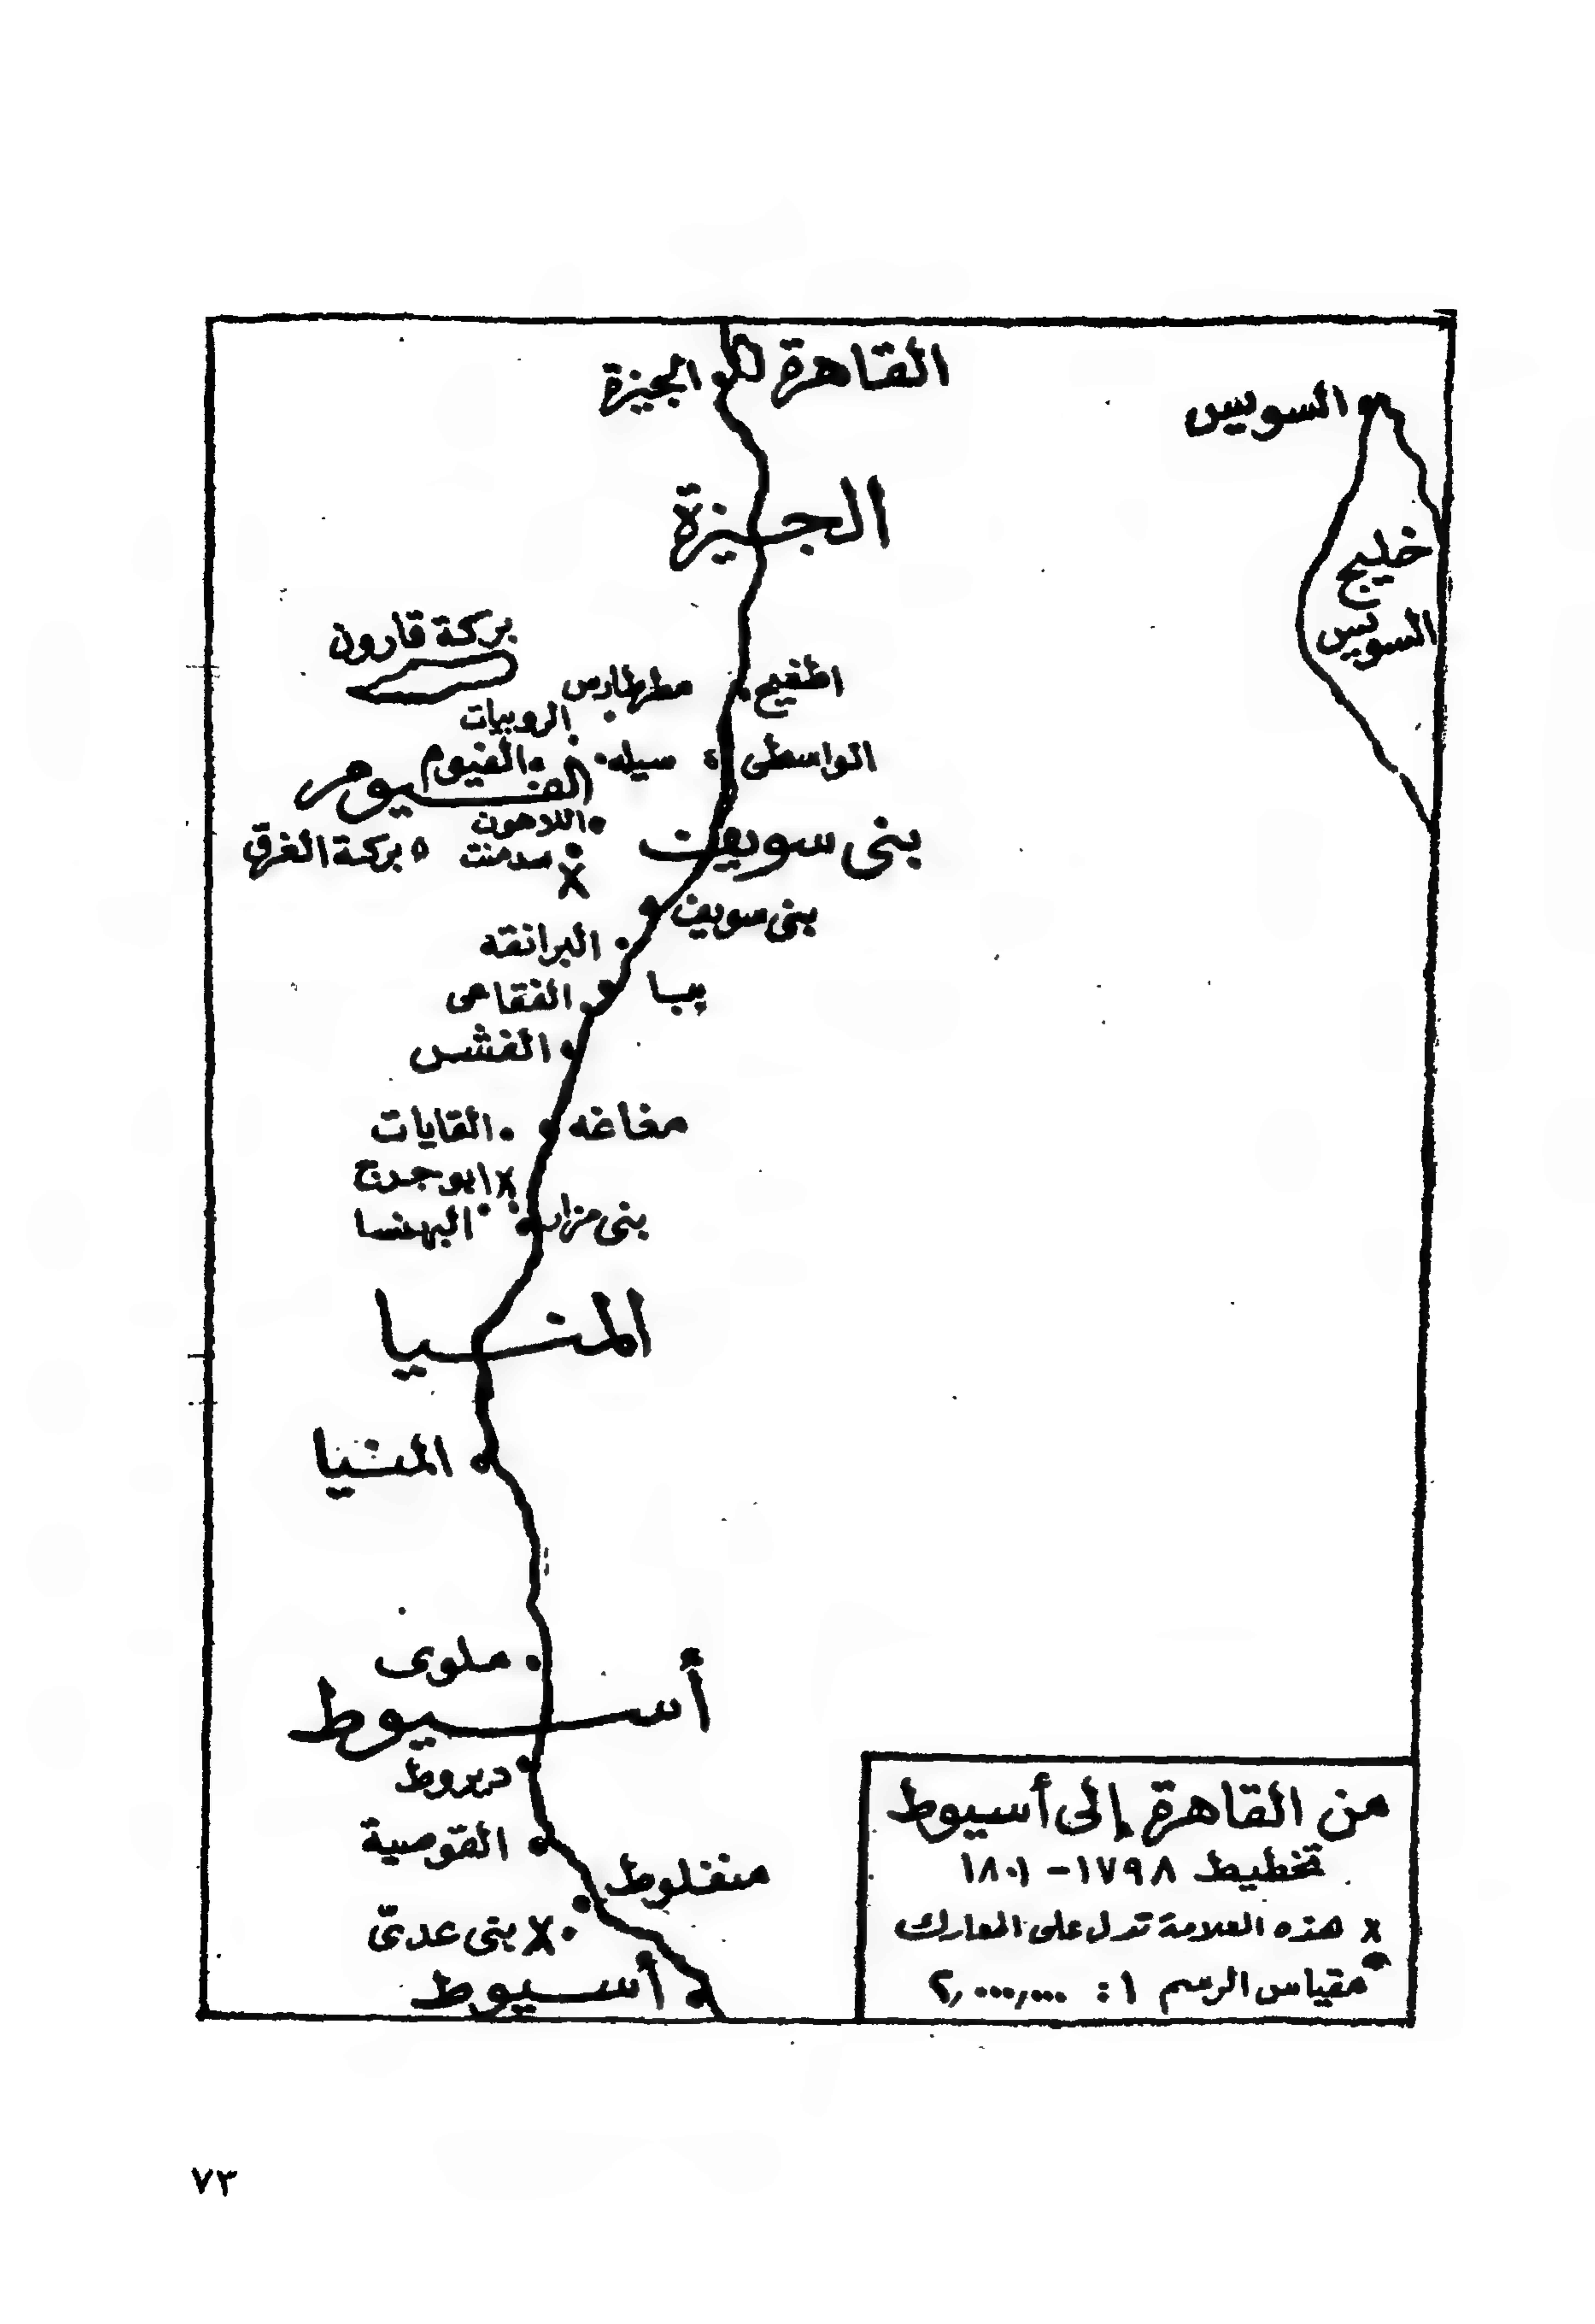 القاهرة
الجيزة
السويس
الجيزة
خليج
السويس
بركة قارون
اطفيح
مطهارس
الروبيات
الواسطى
سيله
الفيوم
الفيوم
اللاهون
بنى سويف
بركة الغرق
سدمنت
x
بنى سويف
البرانقه
ببا
الفقاعى
الفشن
مغاغه
القايات
x ابو جرج
بنى مزار
البهنسا
المنيا
المنيا
ملوى
أسيوط
ديروط
القوصية
منفلوط
x بنى عدىّ
أسيوط
من القاهرة إلى أسيوط
تخطيط ١٧٩٨ - ١٨٠١
x هذه العلامة تدل على المعارك
مقياس الرسم ١ : ٢,٠٠٠,٠٠٠
٧٣